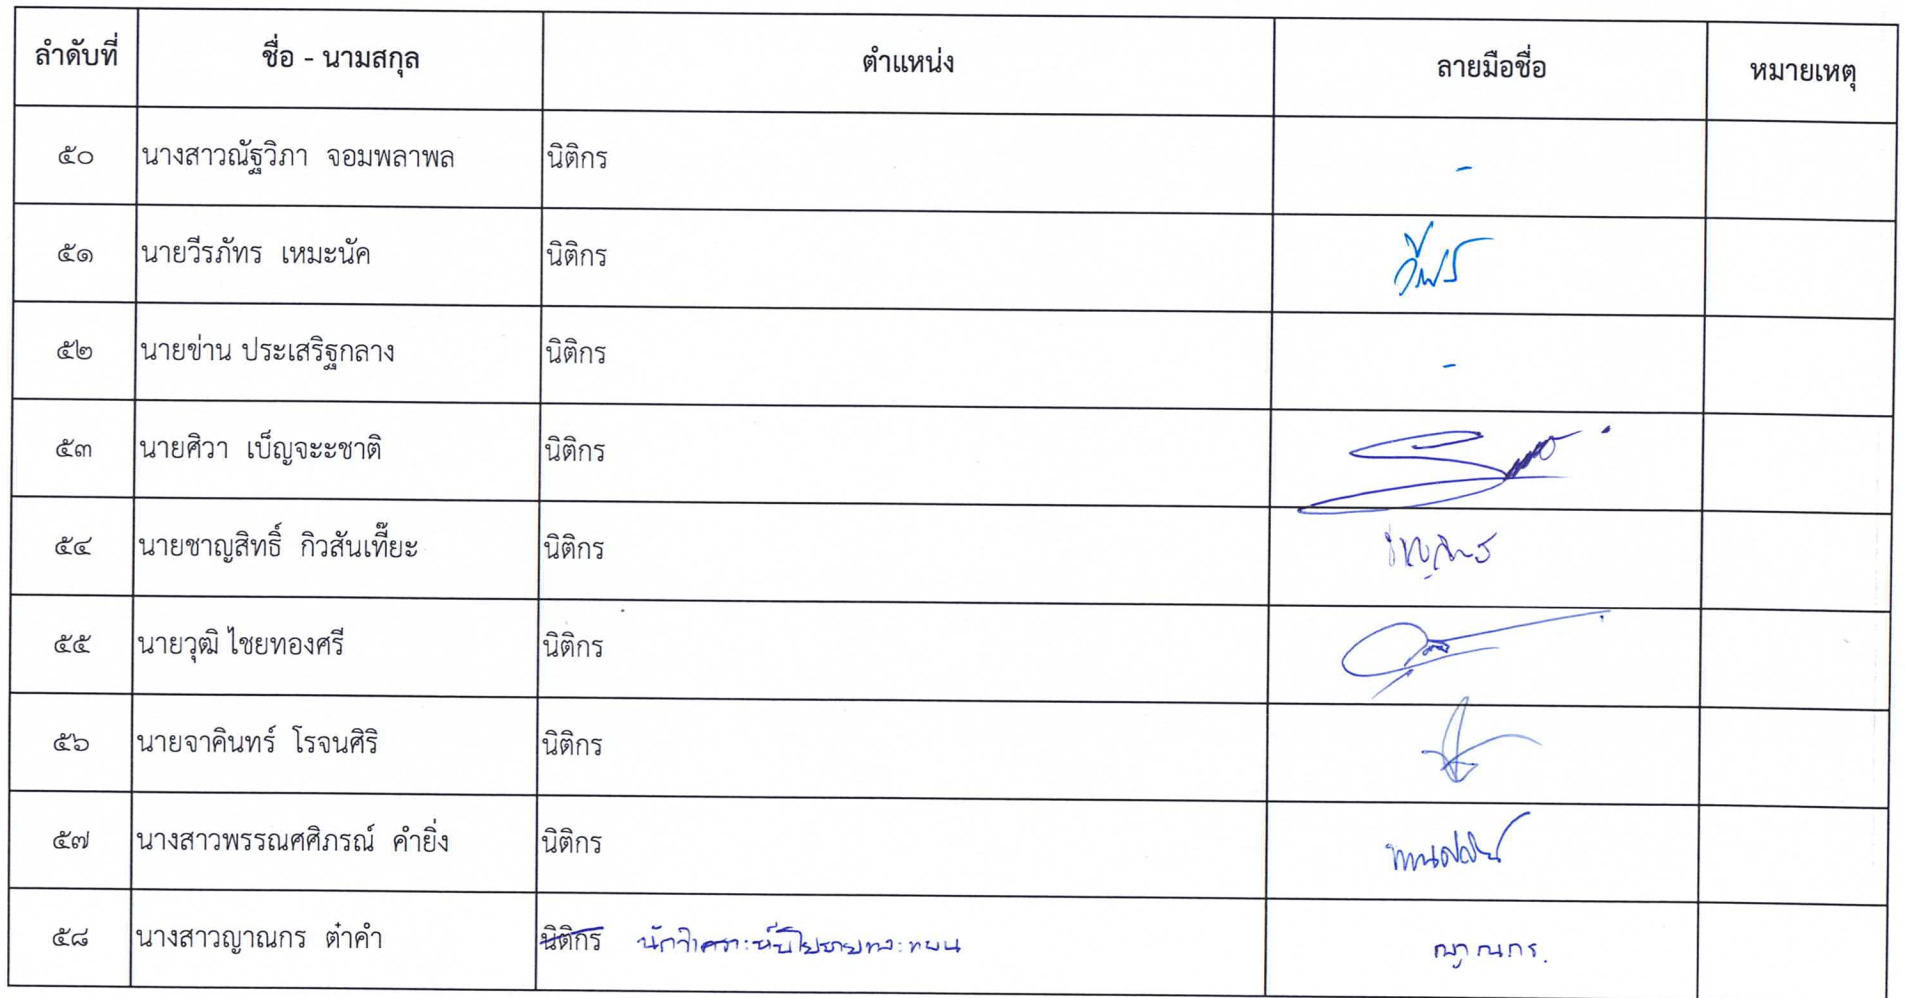 ลำดับที่ ชื่อ - นามสกุล ตำแหน่ง ลายมือชื่อ หมายเหตุ
๕๐ นางสาวณัฐวิภา จอมพลาพล นิติกร -
๕๑ นายวีรภัทร เหมะนัค นิติกร
๕๒ นายข่าน ประเสริฐกลาง นิติกร -
๕๓ นายศิวา เบ็ญจะะชาติ นิติกร
๕๔ นายชาญสิทธิ์ กิวสันเที๊ยะ นิติกร ชาญสิทธิ์
๕๕ นายวุฒิ ไชยทองศรี นิติกร
๕๖ นายจาคินทร์ โรจนศิริ นิติกร
๕๗ นางสาวพรรณศศิภรณ์ คำยิ่ง นิติกร
๕๘ นางสาวญาณกร ต๋าคำ นิติกร นักวิเคราะห์นโยบายและแผน ญาณกร.